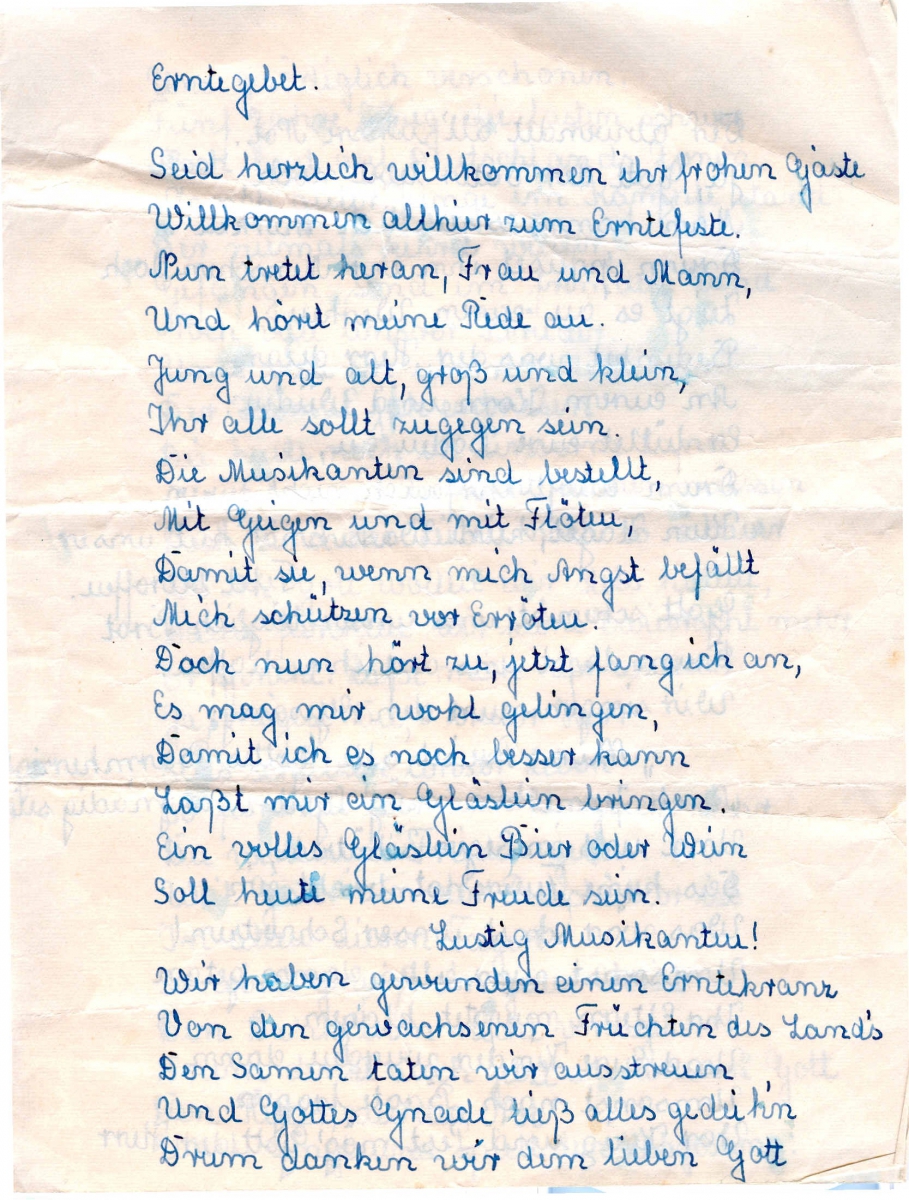 Erntegebet.
Seid herzlich willkommen ihr frohen Gäste
Willkommen allhier zum Erntefeste.
Nun tretet heran, Frau und Mann,
Und höret meine Rede an.
Jung und alt, groß und klein,
Ihr alle sollt zugegen sein.
Die Musikanten sind bestellt,
Mit Geigen und mit Flöten,
Damit sie, wenn mich Angst befällt
Mich schützen vor Erröten.
Doch nun hört zu, jetzt fang ich an,
Es mag mir wohl gelingen,
Damit ich es noch besser kann
Laßt mir ein Gläslein bringen.
Ein volles Gläslein Bier oder Wein
Soll heute meine Freude sein.
Lustig Musikanten!
Wir haben gewunden einen Erntekranz
Von den gewachsenen Früchten des Land's
Den Samen taten wir ausstreuen,
Und Gottes Gnade ließ alles gedeih'n
Drum danken wir dem lieben Gott